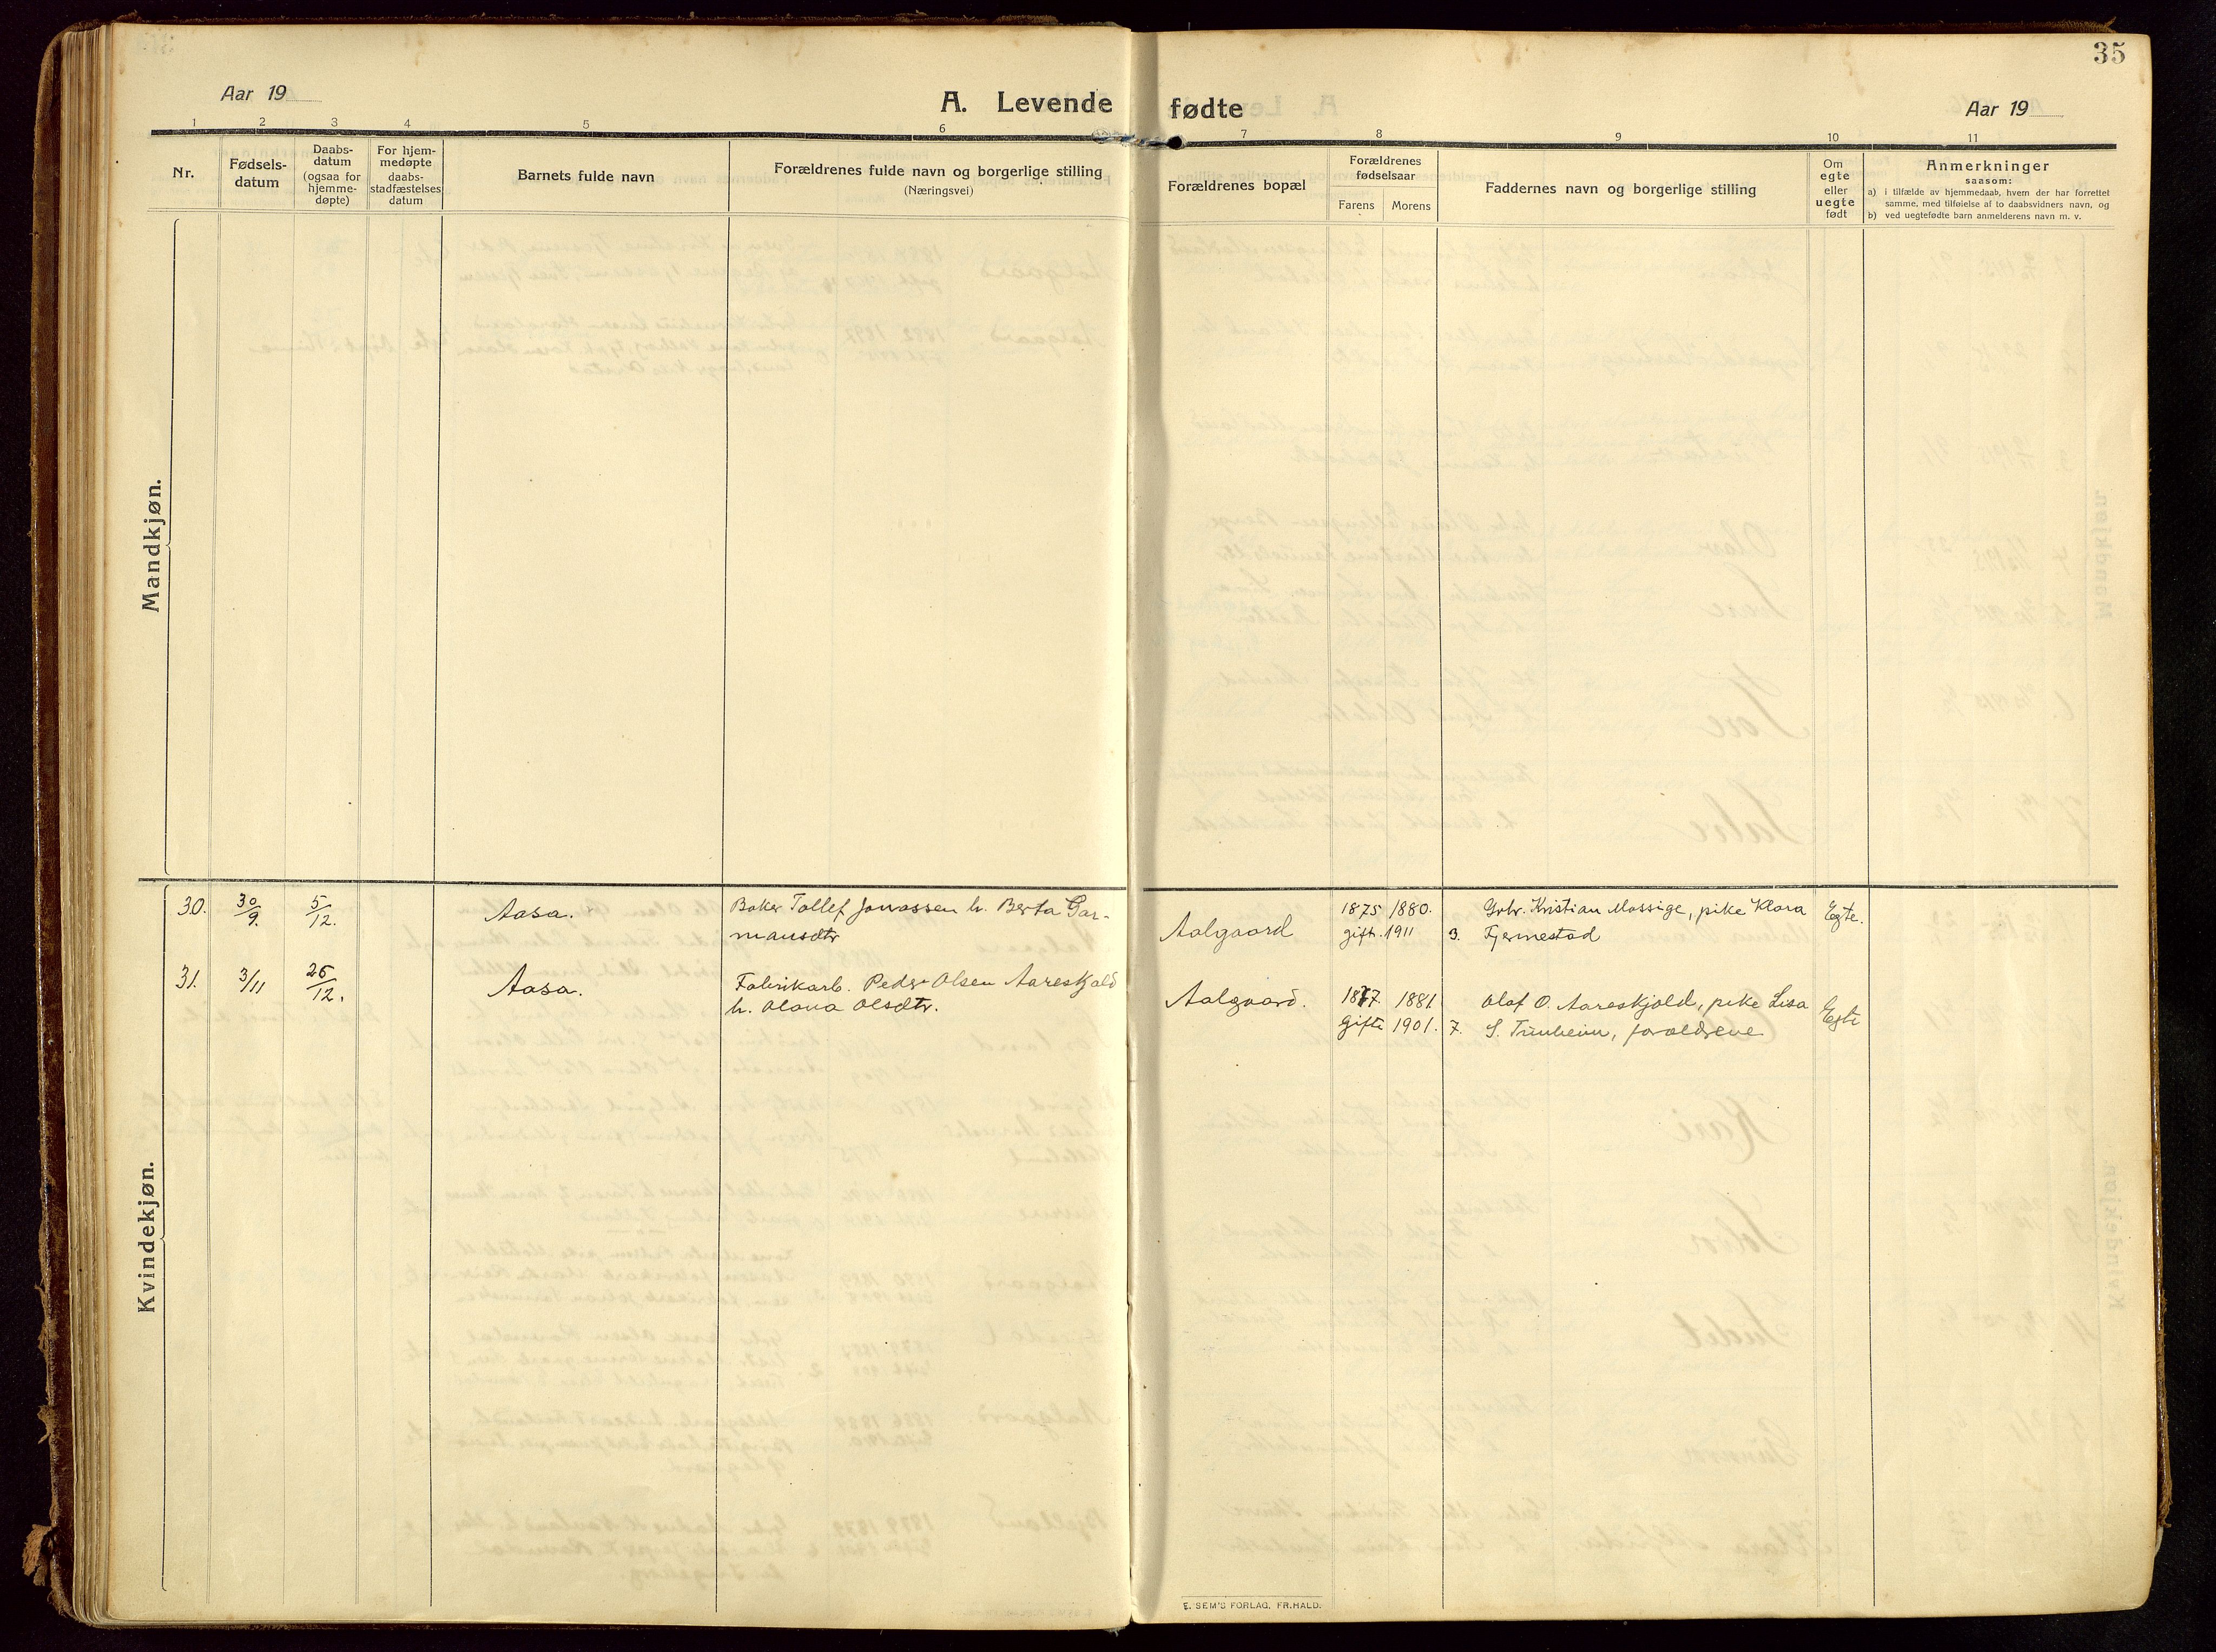 35
Aar 19
A. Levende fødte
Aar 19
1 2 3 4 5 6 7 8 9 10 11
Nr.
Fødsels-
datum
Daabs-
datum
(ogsaa for
hjemme-
døpte)
For hjem-
medøpte
daabs-
stadfæstelses
datum
Barnets fulde navn
Forældrenes fulde navn og borgerlige stilling
(Næringsvei)
Forældrenes bopæl
Forældrenes
fødselsaar
Farens Morens
Faddernes navn og borgerlige stilling
Om
egte
eller
uegte
født
Anmerkninger
saasom:
a) i tilfælde av hjemmedaab, hvem der har forrettet
samme, med tilføielse af to daabsvidners navn, og
b) ved uegtefødte barn anmelderens navn m. v.
Mandkjøn.
Kvindekjøn.
30. 30/9. 5/12. Aasa. Baker Tollef Jonassen h. Berta Gar-
mansdtr
Aalgaard
1875 1880.
gift. 1911 3.
Grbr. Kristian Mossige, pike Klara
Fjermestad
Egte.
31. 3/11 26/12. Aasa. Fabrikarb. Peder Olsen Aareskjold
h. Olava Olsdtr.
Aalgaard.
1877. 1881
Gifte 1901. 7.
Olaf O. Aareskjold, pike Lisa
S. Trunheim, forældrene
Egte
E. SEM'S FORLAG, FR.HALD.